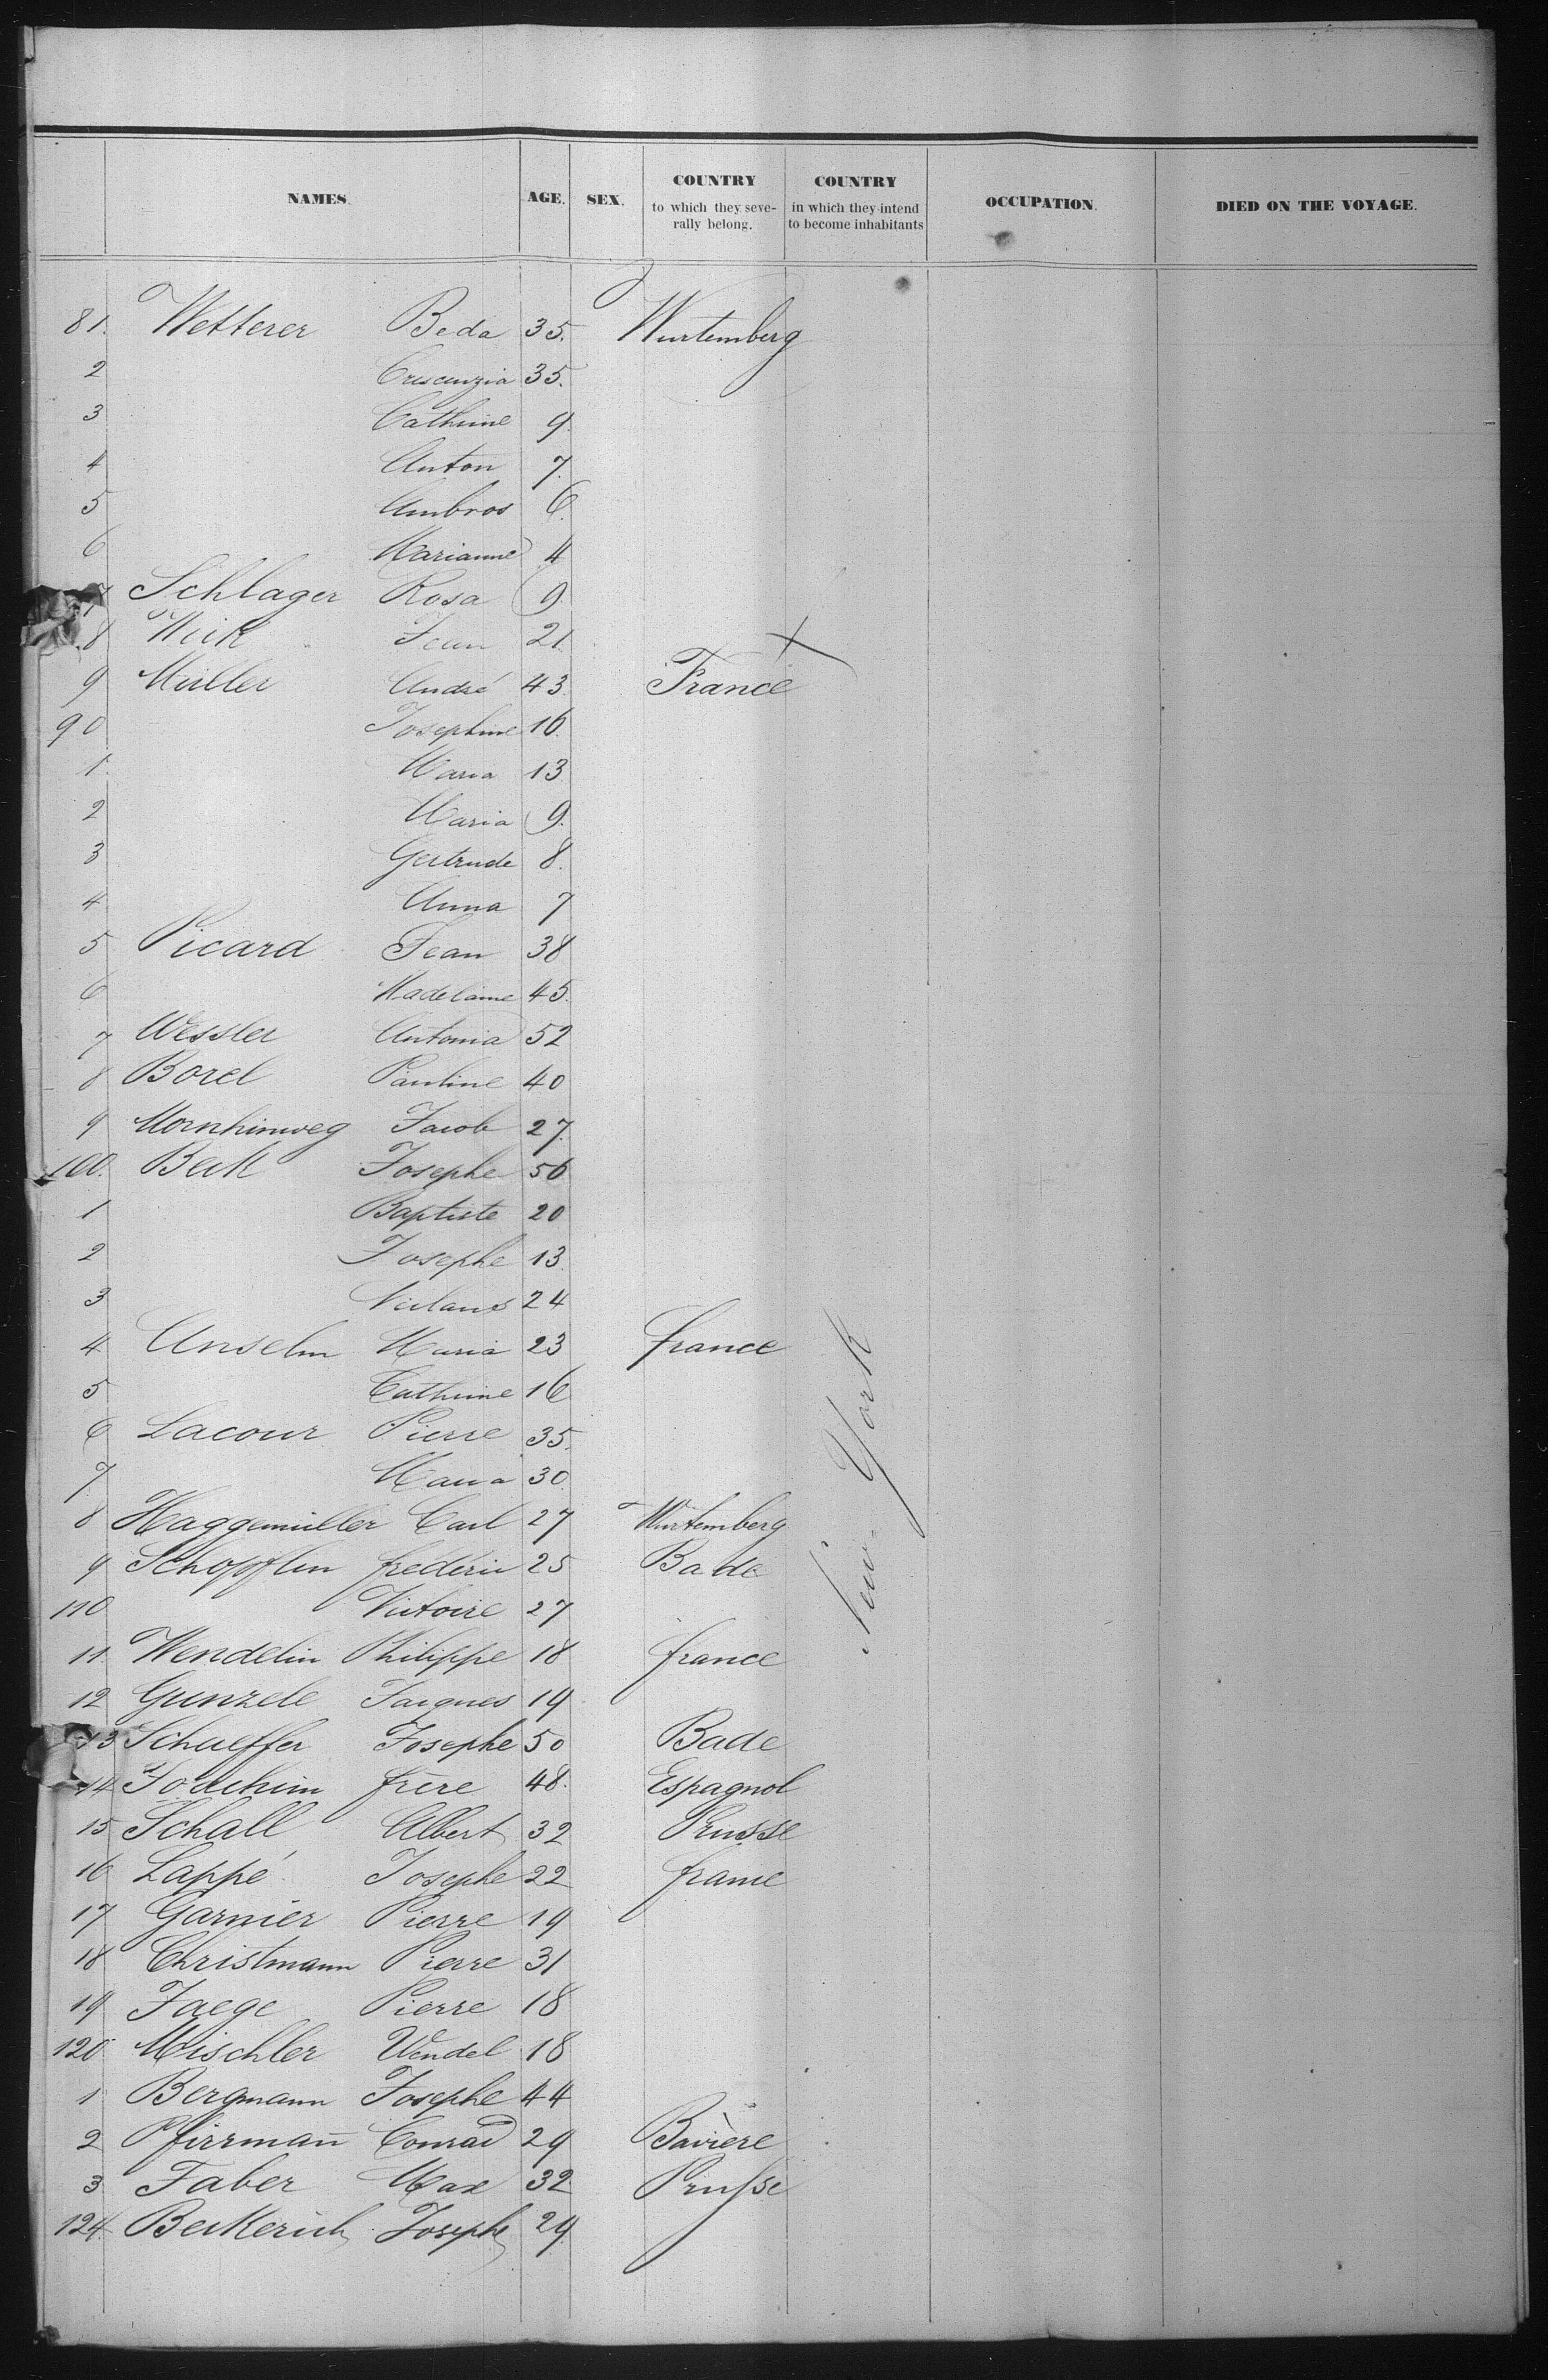 NAMES. AGE. SEX. COUNTRY to which they severally belong. COUNTRY in which they intend to become inhabitants OCCUPATION. DIED ON THE VOYAGE.
81. Wetterer Beda 35. Wurtemberg
2 Crescenzia 35.
3 Cathrine 9
4 Anton 7.
5 Ambros 6.
6 Marianne 4
7 Schlager Rosa 9
8 Weik Jean 21.
9 Müller André 43. France
90 Josephine 16.
1. Maria 13
2 Maria 9.
3 Gertrude 8.
4 Anna 7
5 Picard Jean 38
6 Madelaine 45.
7 Wessler Antonia 52
8 Borel Pauline 40
9 Mornhinweg Jacob 27.
100. Beck Josephe 56
1 Baptiste 20
2 Josephe 13.
3 24
4 Anselm Maria 23 france
5 Cathrine 16
6 Lacour Pierre 35.
7 Maria 30
8 Haggemüller Carl 27 Wurtemberg
9 Schopflin frederic 25 Bade
110 Victoire 27
11 Wendelin Philippe 18 france
12 Gunzele Jacques 19
13 Schaeffer Josephe 50 Bade
14 Joachim frère 48. Espagnol
15 Schall Albert 32 Prusse
16 Lappé Josephe 22 france
17 Garnier Pierre 19
18 Christmann Pierre 31
19 Jaege Pierre 18
120 Mischler Wendel 18
1 Bergmann Josephe 44
2 Pfirrmañ Conrad 29 Bavière
3 Faber Max 32 Prusse
124 Beckerich Joseph 29
New-York